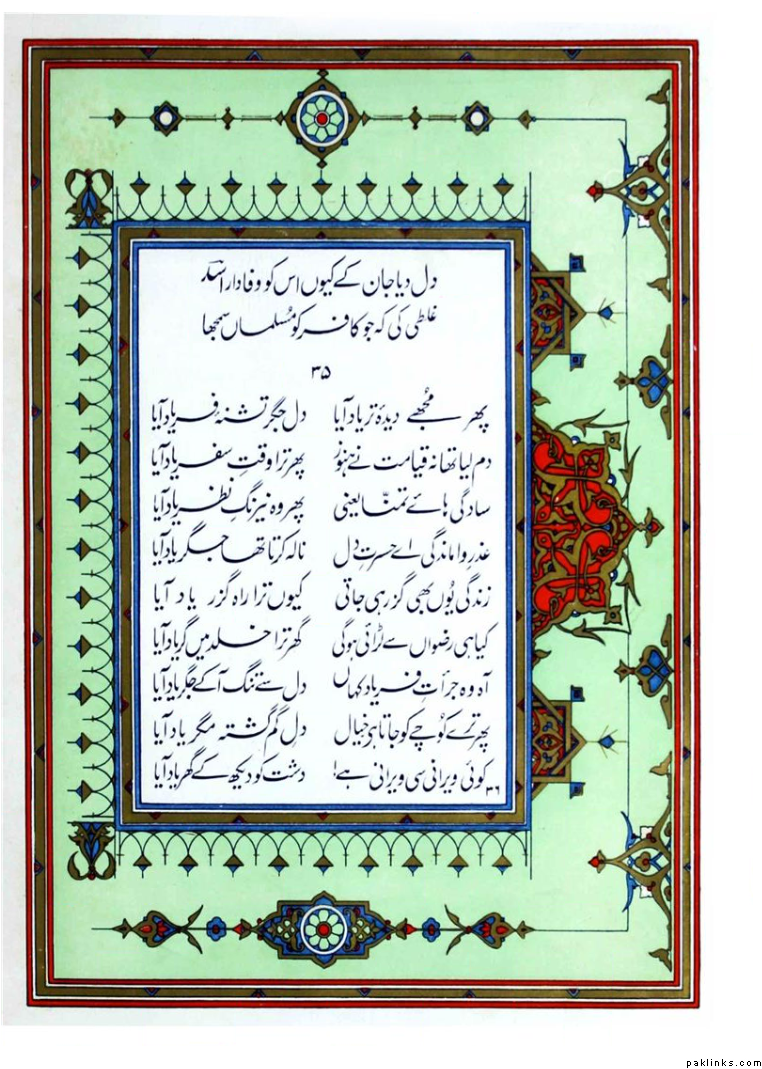 دل دیا جان کے کیوں اس کو وفادار اسد
غلطی کی کہ جو کافر کو مُسلماں سمجھا
۳۵
پھر مجُھے دیدۂ تر یاد آیا دل جگر تشنۂ فریاد آیا
دم لیا تھا نہ قیامت نے ہنوز پھر ترا وقتِ سفر یاد آیا
سادگی ہائے تمنّا یعنی پھر وہ نیرنگِ نظر یاد آیا
عذرِ واماندگی اے حسرتِ دل نالہ کرتا تھا جگر یاد آیا
زندگی یُوں بھی گزر ہی جاتی کیوں ترا راہ گزر یاد آیا
کیا ہی رضواں سے لڑائی ہوگی گھر ترا خلد میں گر یاد آیا
آہ وہ جرأتِ فریاد کہاں دل سے تنگ آکے جگر یاد آیا
پھر ترے کُوچے کو جاتا ہی خیال دلِ گم گشتہ مگر یاد آیا
کوئی ویرانی سی ویرانی ہے! دشت کو دیکھ کے گھر یاد آیا
۳۶
paklinks.com